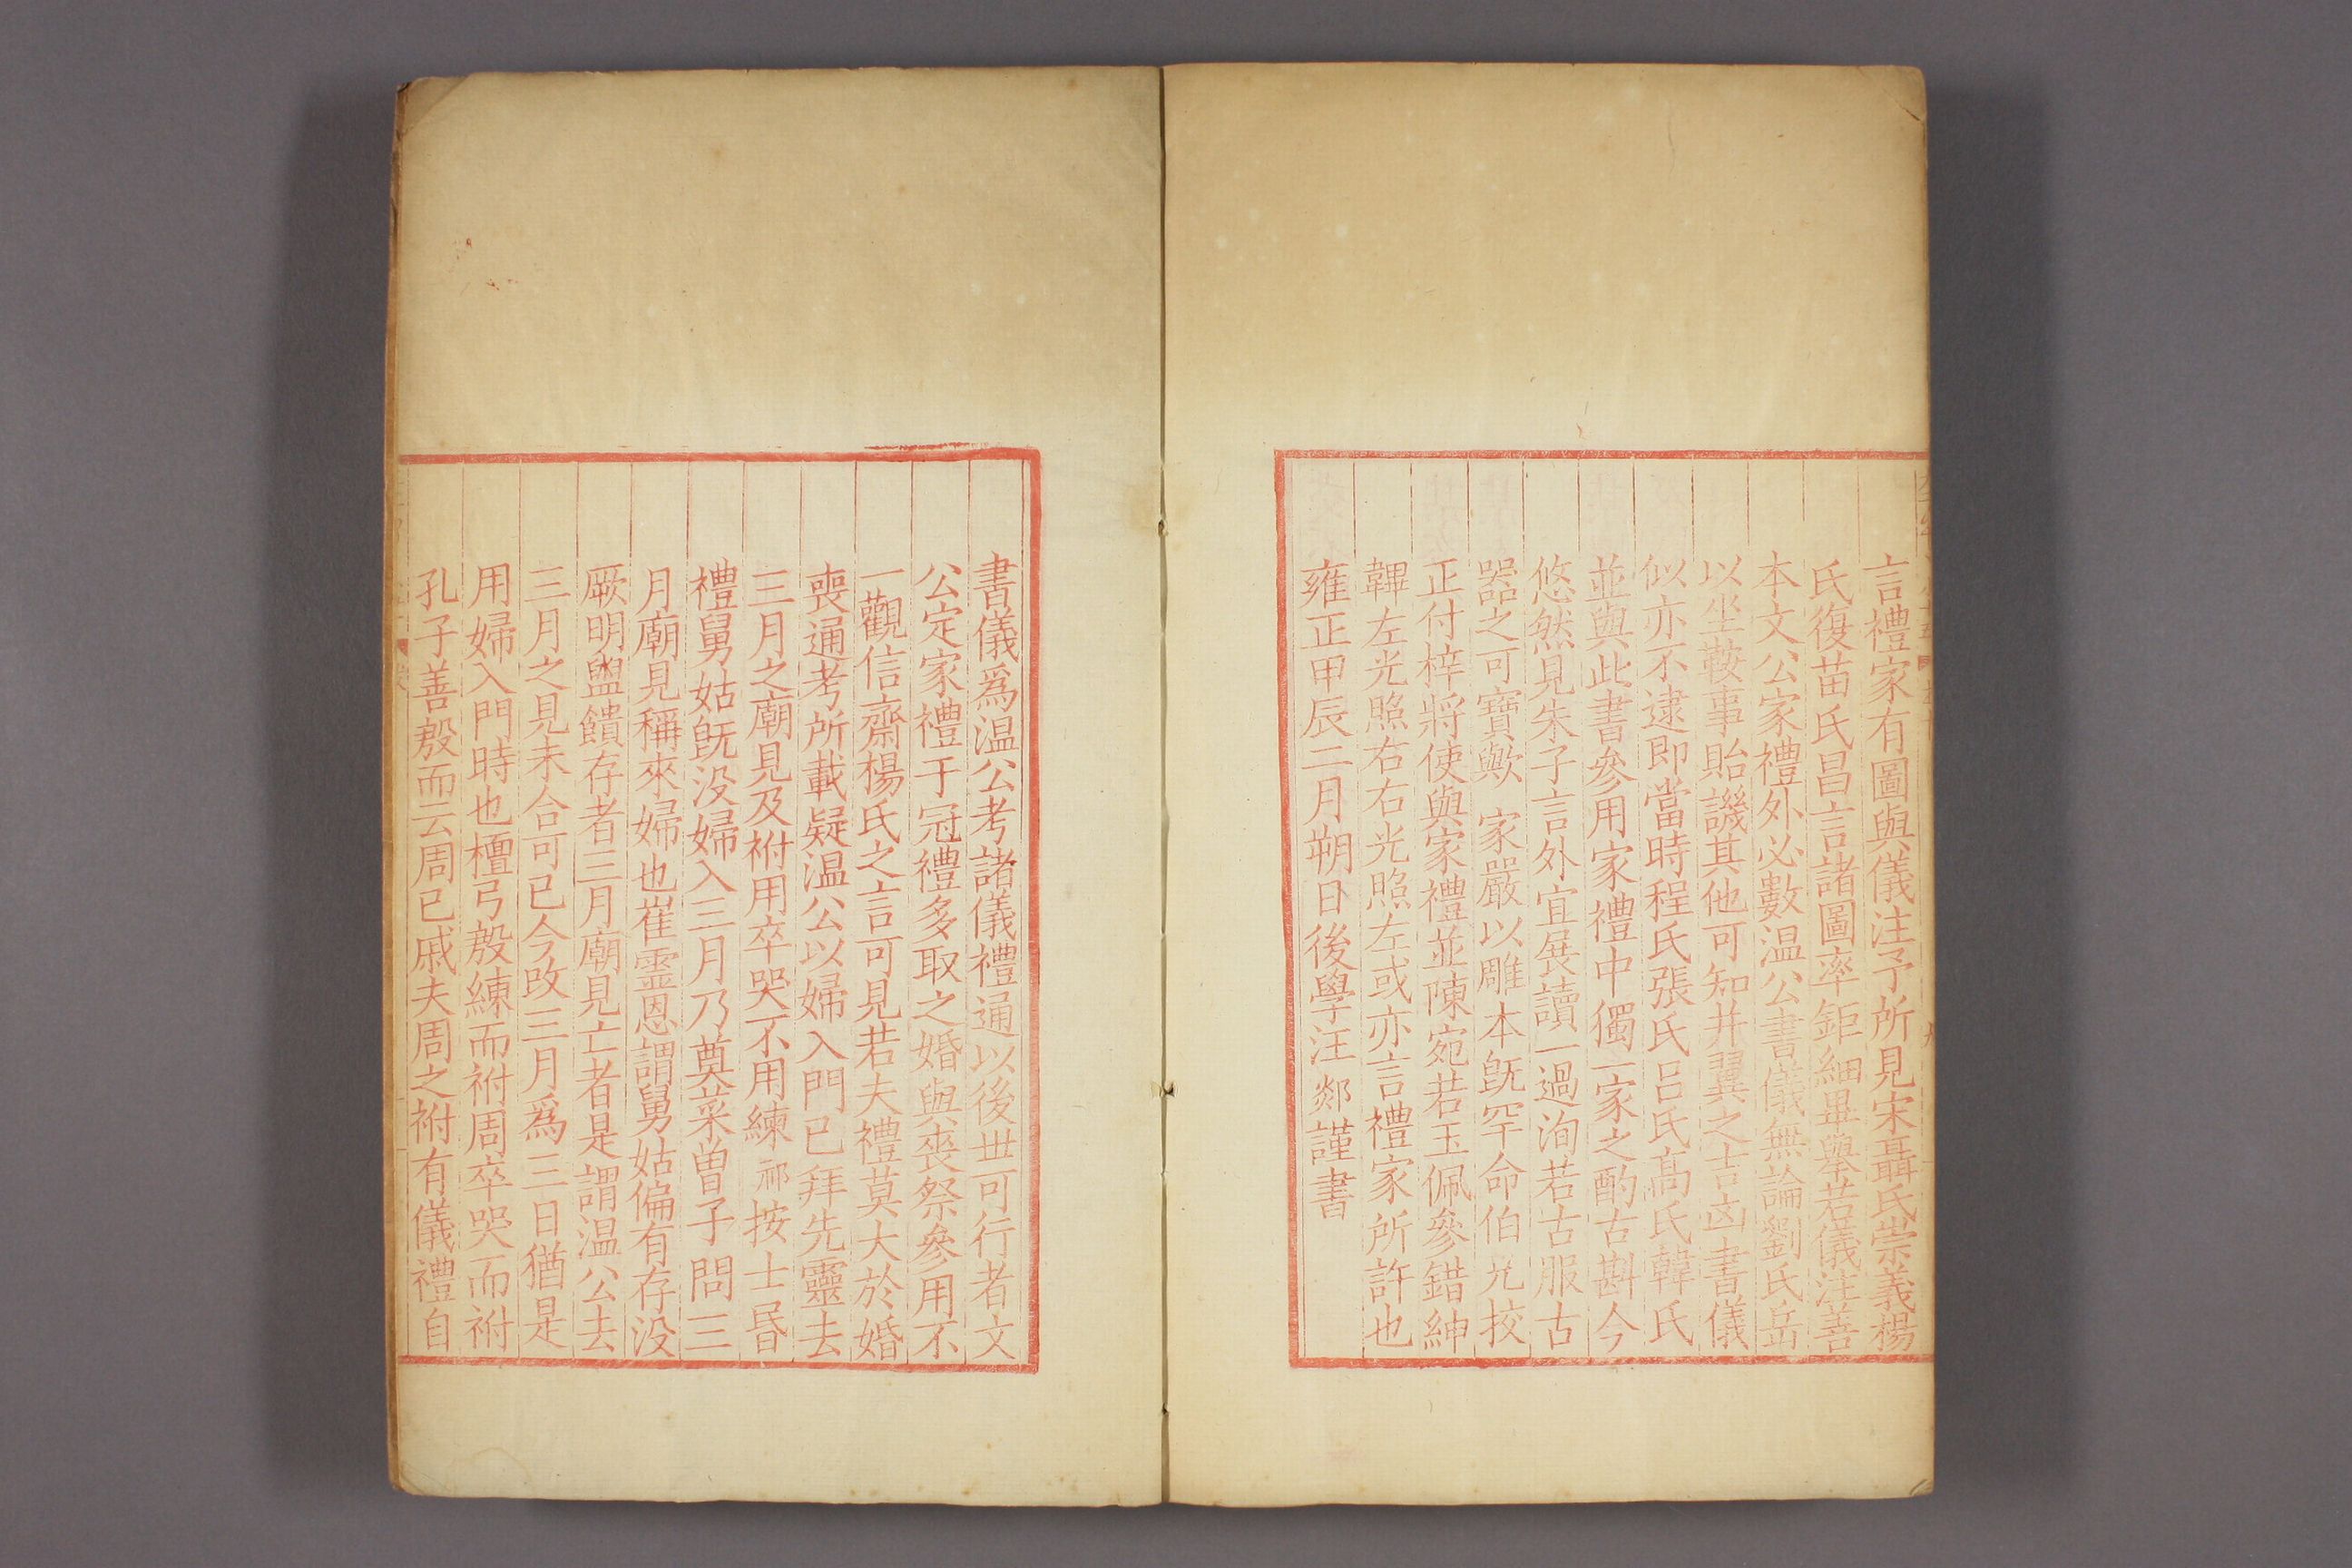 言禮家有圖與儀注予所見宋聶氏崇義楊
氏復苗氏昌言諸圖率鉅細畢舉若儀注善
本文公家禮外必數温公書儀無論劉氏岳
以坐鞍事貽譏其他可知并翼之吉凶書儀
似亦不逮即當時程氏張氏呂氏高氏韓氏
並與此書參用家禮中獨一家之酌古斟今
悠然見朱子言外宜展讀一過洵若古服古
器之可寶歟 家嚴以雕本旣罕命伯兄挍
正付梓將使與家禮並陳宛若玉佩參錯紳
韠左光照右右光照左或亦言禮家所許也
雍正甲辰二月朔日後學汪郯謹書
書儀爲温公考諸儀禮通以後世可行者文
公定家禮于冠禮多取之婚與喪祭參用不
一觀信齋楊氏之言可見若夫禮莫大於婚
喪通考所載疑温公以婦入門已拜先靈去
三月之廟見及祔用卒哭不用練 祁按士昏
禮舅姑旣没婦入三月乃奠菜曾子問三
月廟見稱來婦也崔靈恩謂舅姑偏有存没
厥明盥饋存者三月廟見亡者是謂温公去
三月之見未合可已今改三月爲三日猶是
用婦入門時也檀弓殷練而祔周卒哭而祔
孔子善殷而云周已戚夫周之祔有儀禮自